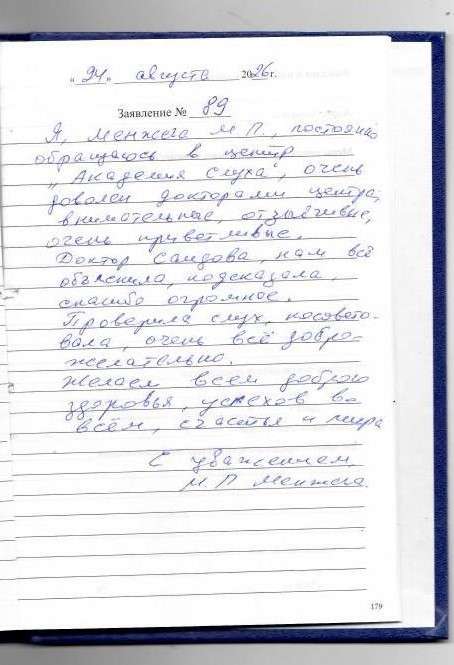 „24" августа 2026 г.
Заявление № 89
Я, Менжега М П., постоянно
обращаюсь в центр
„Академия слуха", очень
доволен докторами центра,
внимательные, отзывчивые,
очень приветливые.
Доктор Саидова, нам всё
объяснила, подсказала,
спасибо огромное.
Проверила слух, посовето-
вала, очень всё добро-
желательно.
Желаем всем доброго
здоровья, успехов во
всём, счастья и мира
С уважением,
М. П Менжега.
179